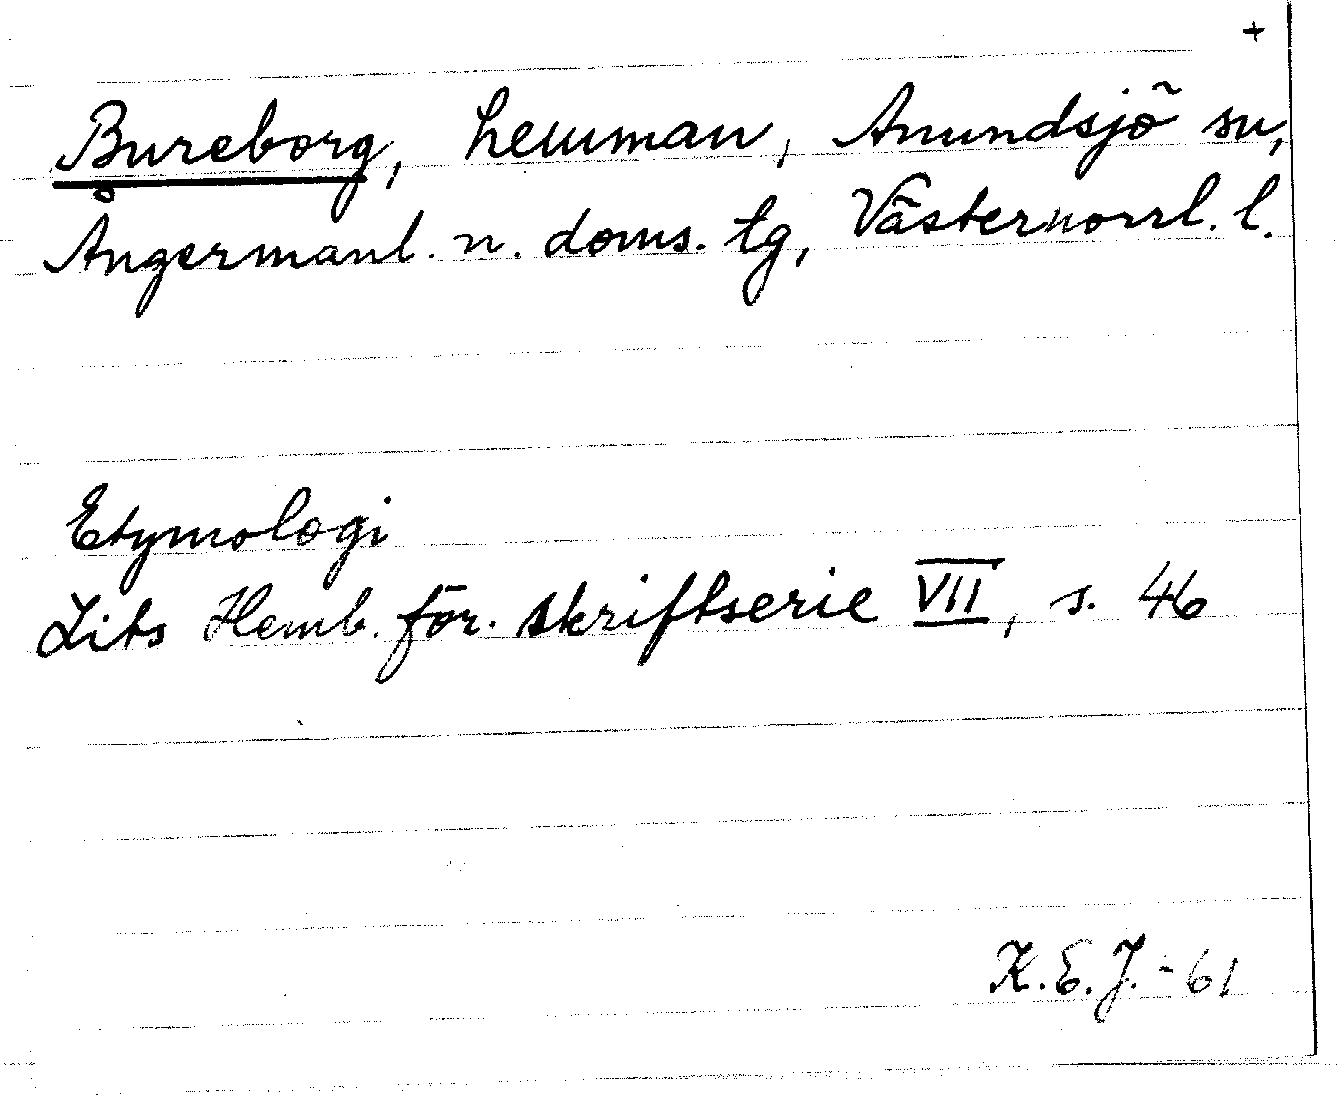 +
Bureborg, hemman, Anundsjö sn,
Ångermanl. n. doms. tg, Västernorrl. l.
Etymologi
Lits Hemb. för. skriftserie VII, s. 46
K.E.J. -61